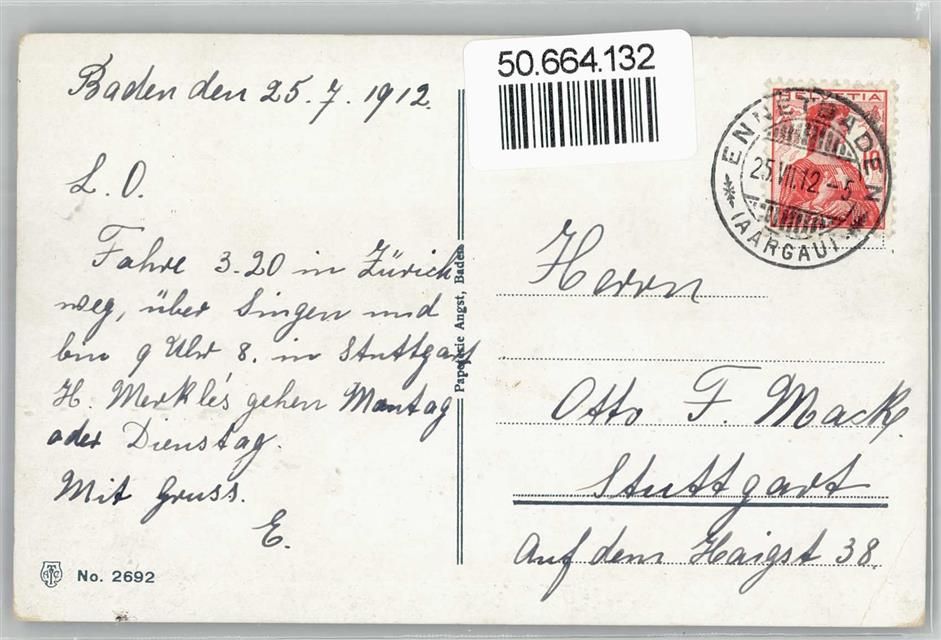 50.664.132
Baden den 25.7.1912.
L. O.
Fahre 3.20 in Zürich
weg, über Singen und
bin 9 Uhr 8. in Stuttgart
H. Merklé's gehen Montag
oder Dienstag.
Mit Gruss.
E.
No. 2692
Papeterie Angst, Baden
HELVETIA
ENNETBADEN
25.VII.12.-5
(AARGAU)
Herrn
Otto F. Mack.
Stuttgart
Auf dem Haigst 38.